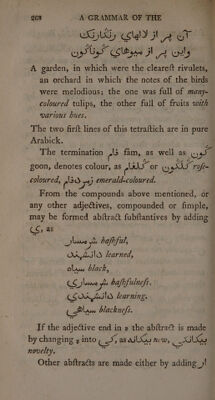 268 A GRAMMAR OF THE
آن پر از لالهای رنگارنگ
واین پر از میوهای گوناگون
A garden, in which were the cleareſt rivulets,
an orchard in which the notes of the birds
were melodious; the one was full of many-
coloured tulips, the other full of fruits with
various hues.
The two firſt lines of this tetraſtich are in pure
Arabick.
The termination فام fam, as well as گون
goon, denotes colour, as گلفام or گلگون roſe-
coloured, زمردفام emerald-coloured.
From the compounds above mentioned, or
any other adjectives, compounded or ſimple,
may be formed abſtract ſubſtantives by adding
ی, as
شرمسار baſhful,
دانشمند learned,
سیاه black,
شرمساری baſhfulneſs.
دانشمندی learning.
سیاهی blackneſs.
If the adjective end in ه the abſtract is made
by changing ه into گی, as بیگانه new, بیگانگی
novelty.
Other abſtracts are made either by adding ار